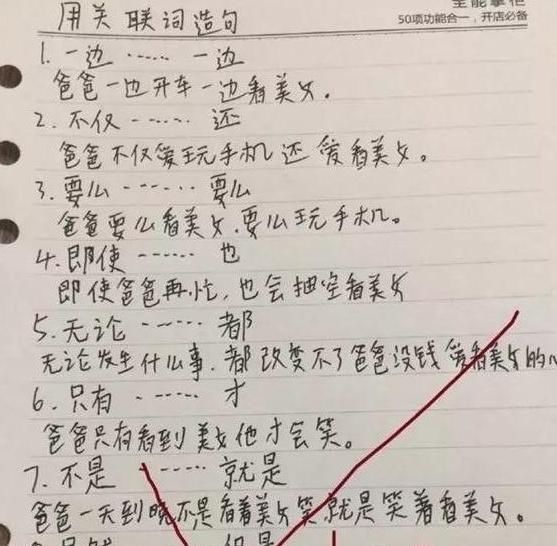 全能掌柜
50项功能合一，开店必备
用关联词造句
1. 一边 ······ 一边
爸爸一边开车一边看美女。
2. 不仅 ······ 还
爸爸不仅爱玩手机还爱看美女。
3. 要么 ······ 要么
爸爸要么看美女.要么玩手机。
4. 即使 ······ 也
即使爸爸再忙,也会抽空看美女
5. 无论 ······ 都
无论发生什么事.都改变不了爸爸没钱爱看美女的
6. 只有 ······ 才
爸爸只有看到美女他才会笑。
7. 不是 ······ 就是
爸爸一天到晚不是看着美女笑就是笑着看美女。